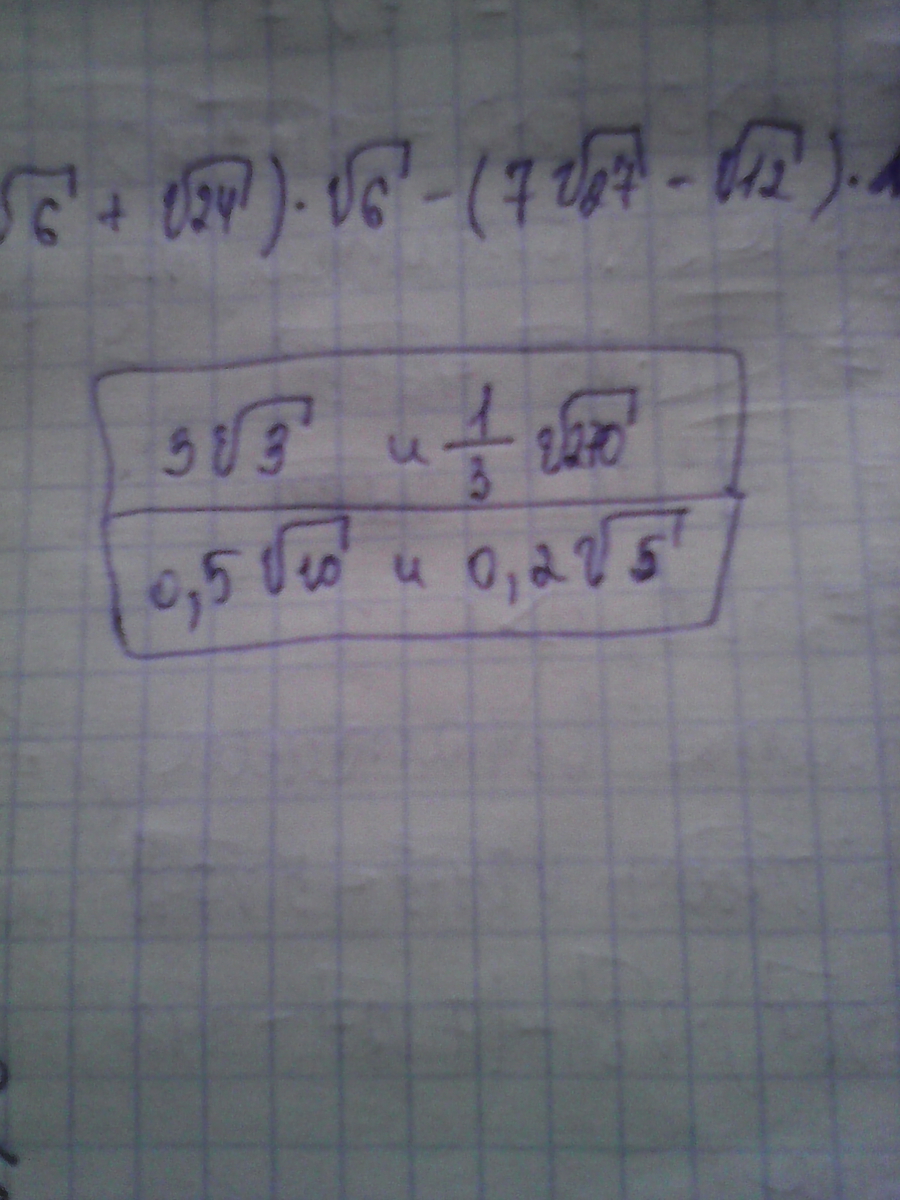 √6 + √24) · √6 - (7√27 - √12) ·
3√3 и 1/3 √270
0,5√10 и 0,2√5